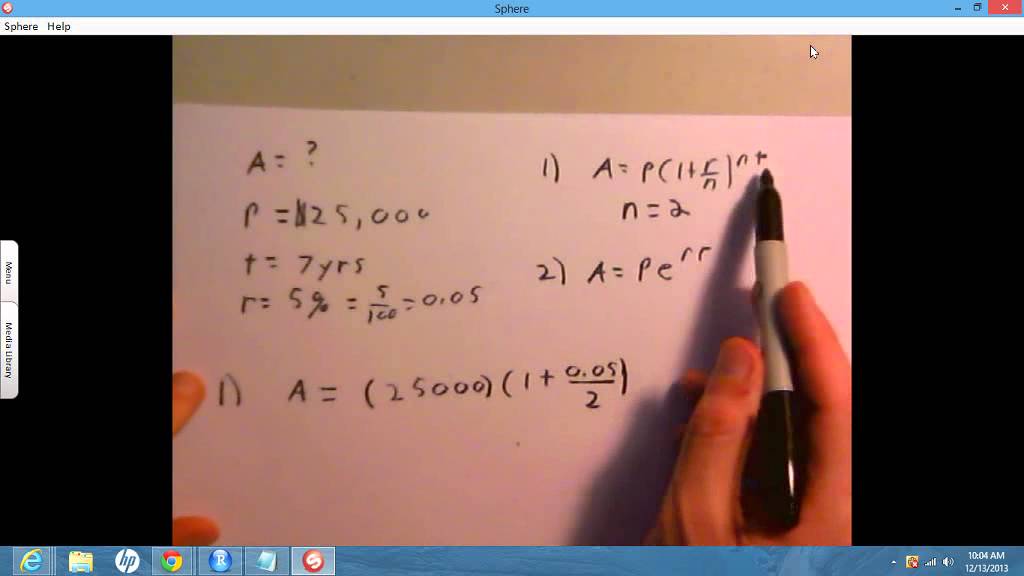 Sphere
Sphere Help
A = ?
P = $25,000
t = 7yrs
r = 5% = 5/100 = 0.05
1) A = P(1+r/n)^nt
n = 2
2) A = Pe^rr
1) A = (25000)(1 + 0.05/2)
Menu
Media Library
hp
R
10:04 AM
12/13/2013